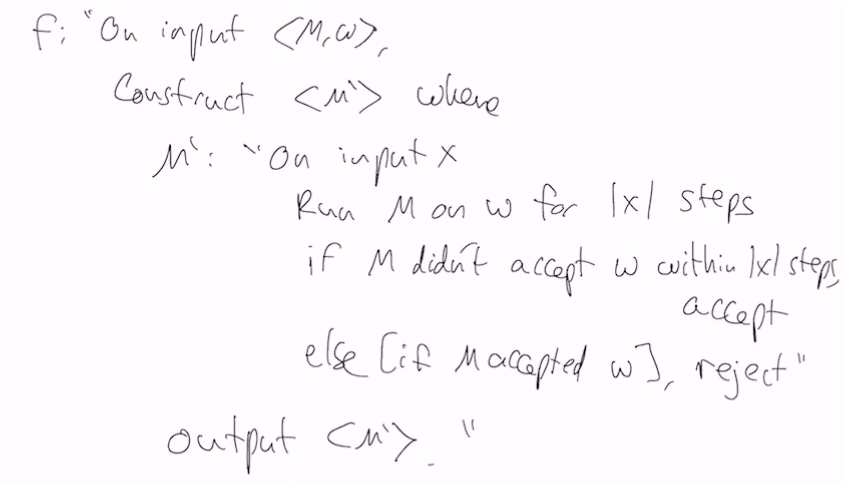 f: "On input <M,w>,
Construct <M'> where
M': "On input x
Run M on w for |x| steps
if M didn't accept w within |x| steps,
accept
else [if M accepted w], reject"
output <M'>. "